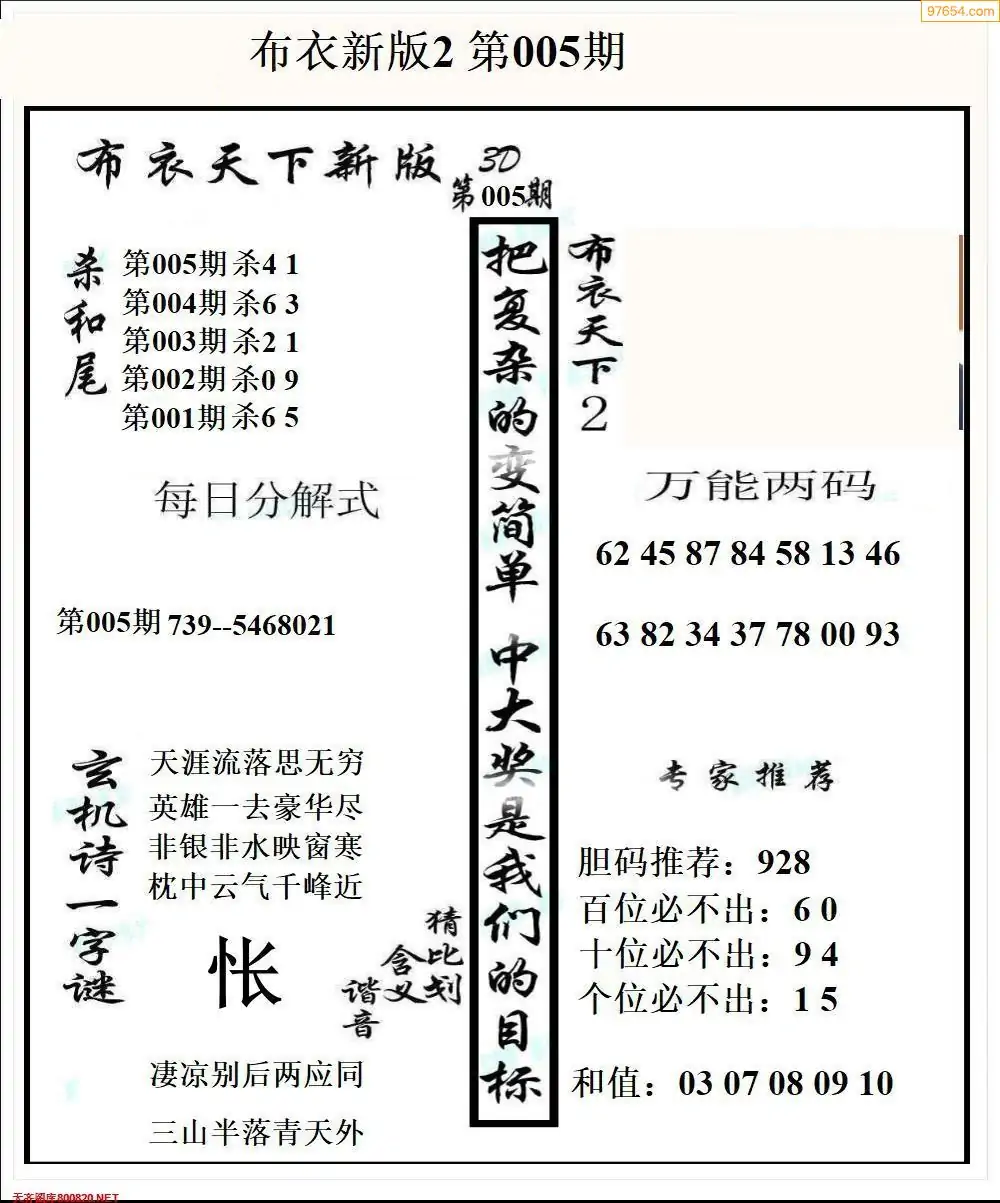 97654.com
布衣新版2 第005期
布衣天下新版 3D
第005期
杀和尾
第005期 杀4 1
第004期 杀6 3
第003期 杀2 1
第002期 杀0 9
第001期 杀6 5
每日分解式
第005期 739--5468021
玄机诗一字谜
天涯流落思无穷
英雄一去豪华尽
非银非水映窗寒
枕中云气千峰近
怅
猜比划
含义
谐音
凄凉别后两应同
三山半落青天外
把复杂的变简单 中大奖是我们的目标
布衣天下2
万能两码
62 45 87 84 58 13 46
63 82 34 37 78 00 93
专家推荐
胆码推荐：928
百位必不出：6 0
十位必不出：9 4
个位必不出：1 5
和值：03 07 08 09 10
天齐图库800820.NET